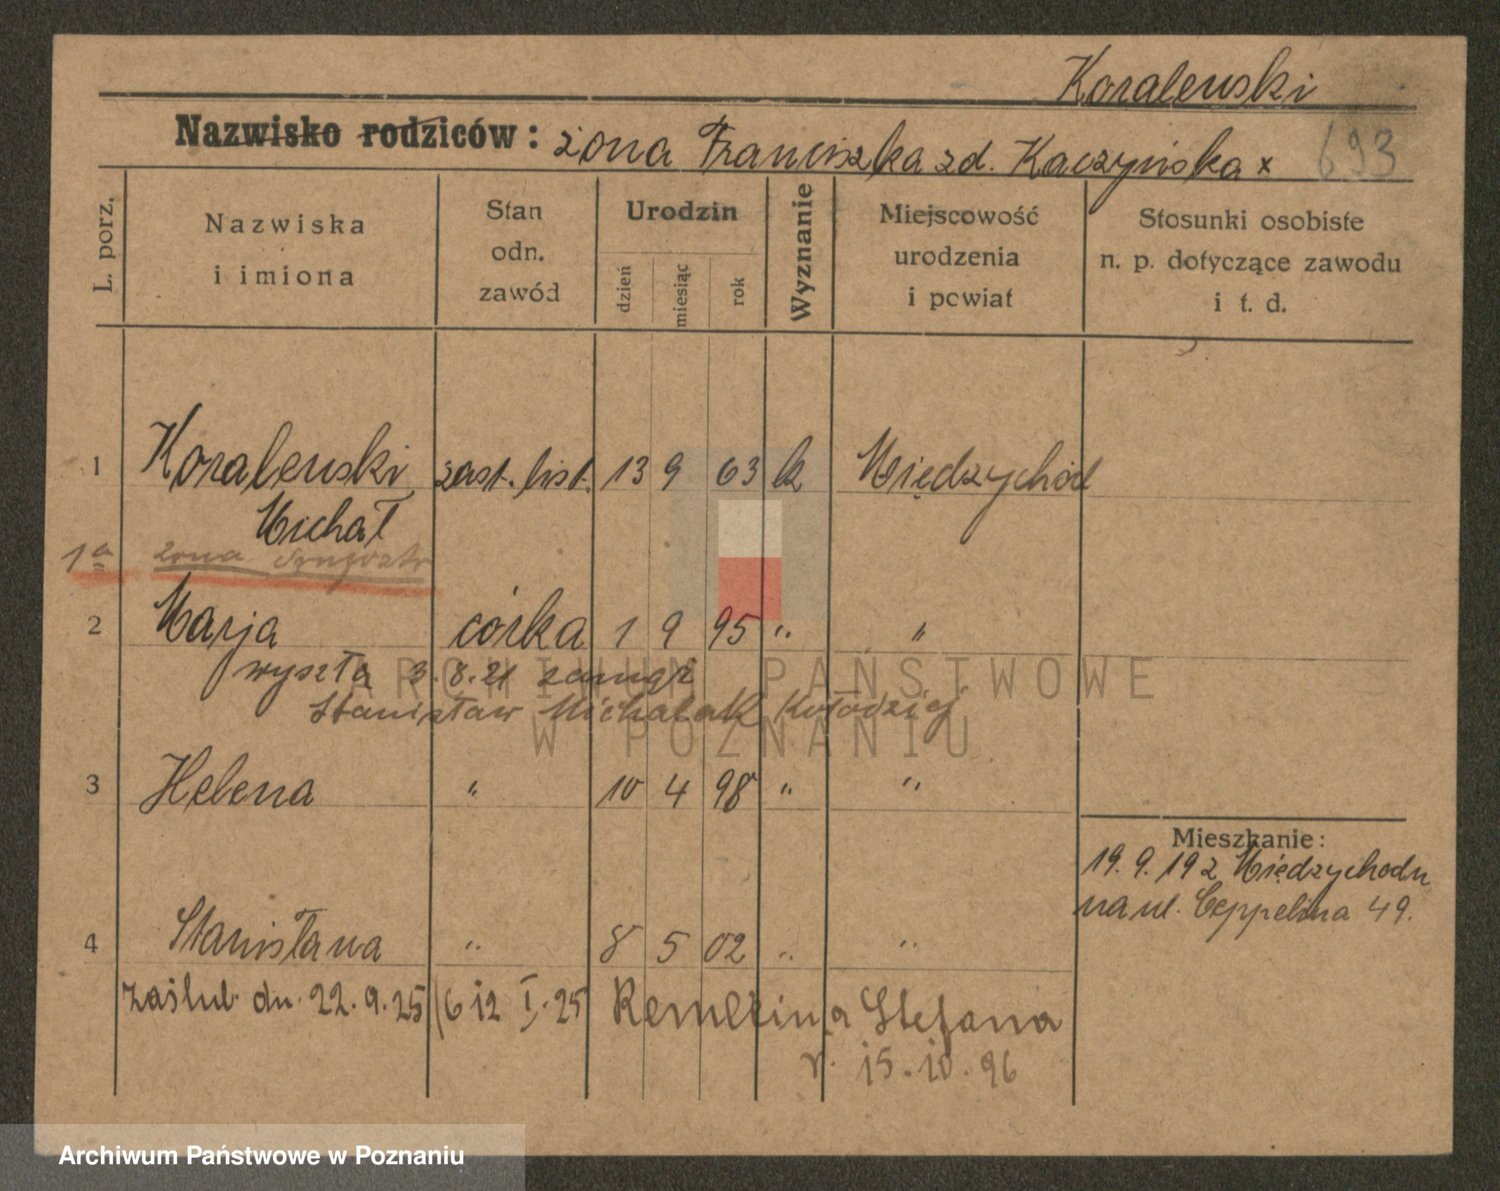 Koralewski
Nazwisko rodziców: żona Franciszka zd. Kaczyńska x 693
L. porz.
Nazwiska
i imiona
Stan
odn.
zawód
Urodzin
dzień
miesiąc
rok
Wyznanie
Miejscowość
urodzenia
i powiat
Stosunki osobiste
n. p. dotyczące zawodu
i t. d.
1 Koralewski zast. list. 13 9 63 k Międzychód
Michał
1a żona
2 Marja córka 1 9 95 " "
wyszła 3.8.21 zamąż
Stanisław Michalak Kołodziej
3 Helena " 10 4 98 " "
Mieszkanie:
19.9.192 Międzychodu
na ul. Ceppelina 49.
4 Stanisława " 8 5 02 " "
zaślub. dn. 22.9.25 (6 12 I. 25 Stefana
r. 15.10.96
ARCHIWUM PAŃSTWOWE
W POZNANIU
Archiwum Państwowe w Poznaniu